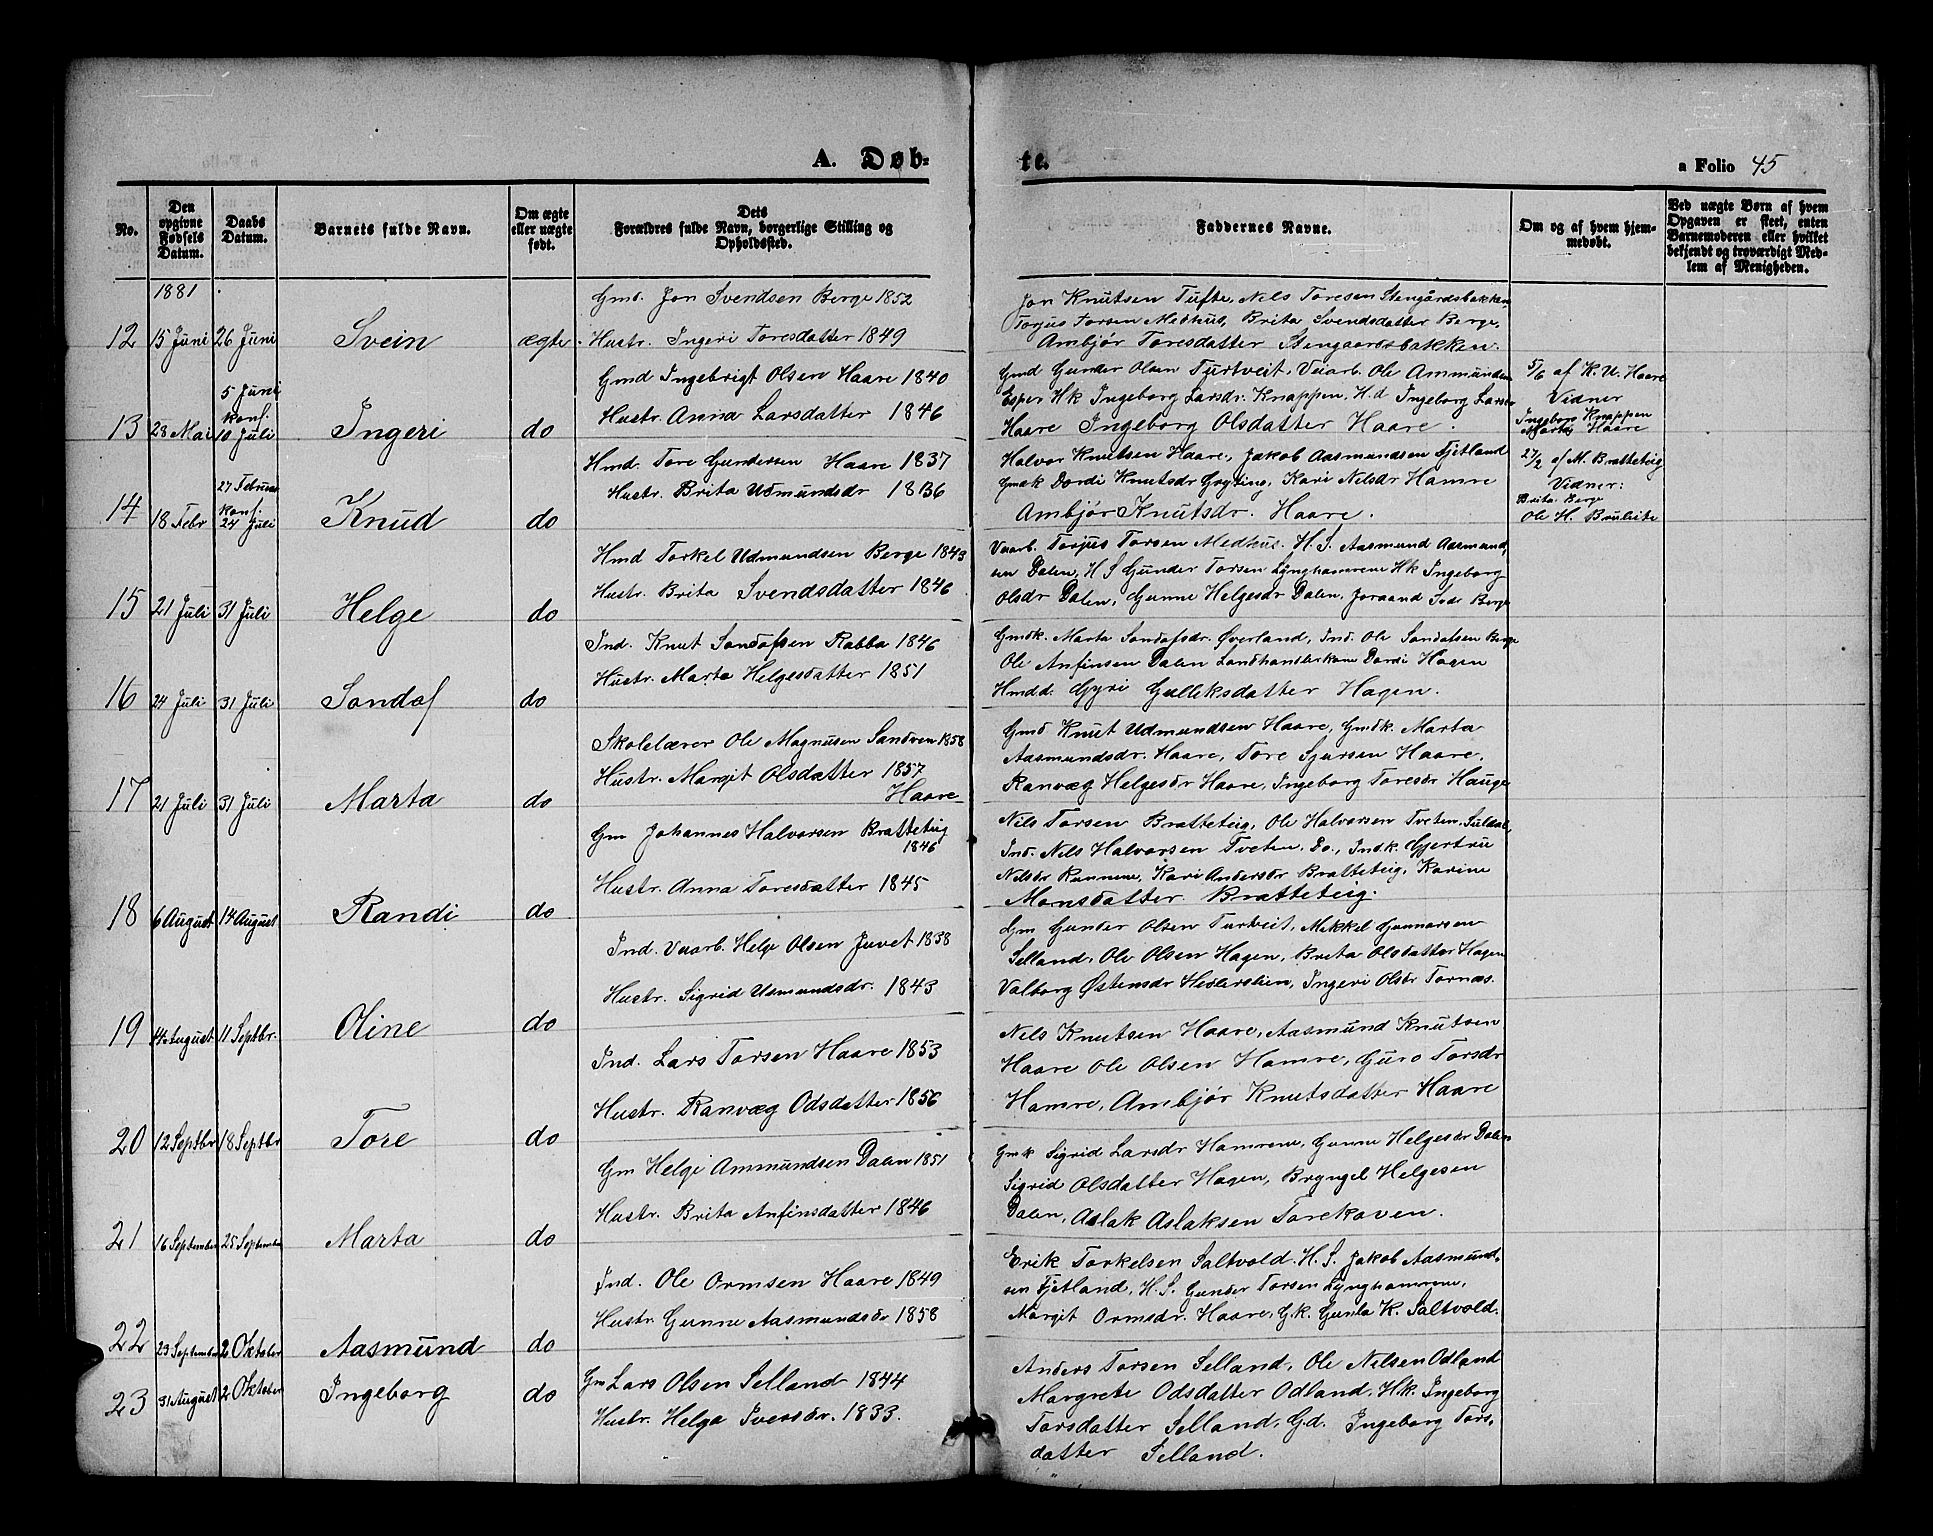 A. Døb-
te.
a Folio 45
No.
Den opgivne Fødsels Datum.
Daabs Datum.
Barnets fulde Navn.
Om ægte eller uægte født.
Dets Forældres fulde Navn, borgerlige Stilling og Opholdssted.
Faddernes Navne.
Om og af hvem hjemmedøbt.
Ved uægte Børn af hvem Opgaven er skeet, enten Barnemoderen eller hvilket bekjendt og troværdigt Medlem af Menigheden.
1881
Gmd. Jon Svendsen Berge 1852
12 15 Juni 26 Juni Svein ægte Hustr. Ingeri Toresdatter 1849
Jon Knutsen Tufte, Nils Toresen Stengårdsbakken
Torjus Torsen Medhus, Brita Svendsdatter Berge,
Ambjør Toresdatter Stengaardsbakken.
Gmd Ingebrigt Olsen Haare 1840
5 Juni
konf.
13 28 Mai 10 Juli Ingeri do Hustr. Anna Larsdatter 1846
Gmd Gunder Olsen Turtveit, Uarb. Ole Ammundsen
Esper Hk Ingeborg Larsdr. Knappen, H.d Ingeborg Larsdr
Haare Ingeborg Olsdatter Haare.
5/6 af K. U. Haare
Vidner
Ingeborg Knappen
Marta Haare
Hmd. Tore Gundersen Haare 1837
27 Februar
konf.
14 18 Febr 24 Juli Knud do Hustr. Brita Udmundsdr 1836
Halvor Knutsen Haare, Jakob Aasmundsen Fjetland
Gmdk Dordi Knutsdr Gryting, Kari Nilsdr Hamre
Ambjør Knutsdr. Haare.
27/2 af M. Bratteteig
Vidner:
Brita Berge
Ole H. Braulide
Hmd Torkel Udmundsen Berge 1843
15 21 Juli 31 Juli Helge do Hustr. Brita Svendsdatter 1846
Uarb. Torjus Torsen Medhus. H.S. Aasmund Aasmund-
sen Dalen, H S Gunder Torsen Lynghamrene Hk Ingeborg
Olsdr Dalen, Gunne Helgesdr Dalen, Joraand Sdr Berge
Ind. Knut Sondofsen Rabba 1846
16 24 Juli 31 Juli Sondof do Hustr. Marta Helgesdatter 1851
Gmdk. Marta Sondofsdr. Øverland, Ind. Ole Sondofsen Berge
Ole Anfinsen Dalen Landhandlerkone Dordi Hagen
Hmd.d. Gyri Gulleksdatter Hagen.
Skolelærer Ole Magnusen Sandven 1858
17 21 Juli 31 Juli Marta do Hustr. Margit Olsdatter 1857
Haare
Gmd Knut Udmundsen Haare, Gmdk. Marta
Aasmundsdr. Haare, Tore Sjursen Haare.
Ranvæg Helgesdr Haare, Ingeborg Toresdr Hauge
Gm Johannes Halvorsen Bratteteig
1846
18 6 August 14 August Randi do Hustr. Anna Toresdatter 1845
Nils Torsen Bratteteig, Ole Halvorsen Tveten, Suldal,
Ind. Nils Halvorsen Tveten, Do., Ind.k. Gjertru
Nilsdr Runnene, Kari Andersdr Bratteteig, Karine
Monsdatter Bratteteig.
Ind. Uarb. Helge Olsen Juvet 1838
19 14 August 11 Septbr. Oline do Hustr. Sigrid Udmundsdr. 1843
Gm Gunder Olsen Turtveit, Mikkel Gunnarsen
Selland, Ole Olsen Hagen, Brita Olsdatter Hagen
Valborg Østensdr Hedlerslien, Ingeri Olsdr Tornæs.
Ind. Lars Torsen Haare 1853
20 12 Septbr 18 Septbr Tore do Hustr. Ranvæg Odsdatter 1856
Nils Knutsen Haare, Aasmund Knutsen
Haare Ole Olsen Hamre, Guro Torsdr
Hamre, Ambjør Knutsdatter Haare
Gm Helge Ammundsen Dalen 1851
21 16 September 25 September Marta do Hustr. Brita Anfinsdatter 1846
Gmk Sigrid Larsdr Hamrene, Gunne Helgesdr Dalen
Sigrid Olsdatter Hagen, Bryngel Helgesen
Dalen, Aslak Aslaksen Torekoven.
Ind. Ole Ormsen Haare 1849
22 23 September 2 Oktober Aasmund do Hustr. Gunne Aasmundsdr 1858
Erik Torkelsen Saltvold. H.S. Jakob Aasmund-
sen Fjetland, H.S. Gunder Torsen Lynghamrene,
Margit Ormsdr. Haare, G.k. Gunla K. Saltvold.
23 31 August 2 Oktober Ingeborg do Gm Lars Olsen Selland 1844
Hustr. Helga Iversdr. 1833.
Anders Torsen Selland, Ole Nilsen Odland
Margrete Odsdatter Odland, Hk. Ingeborg
Torsdatter Selland, G.d. Ingeborg Tors-
datter Selland.